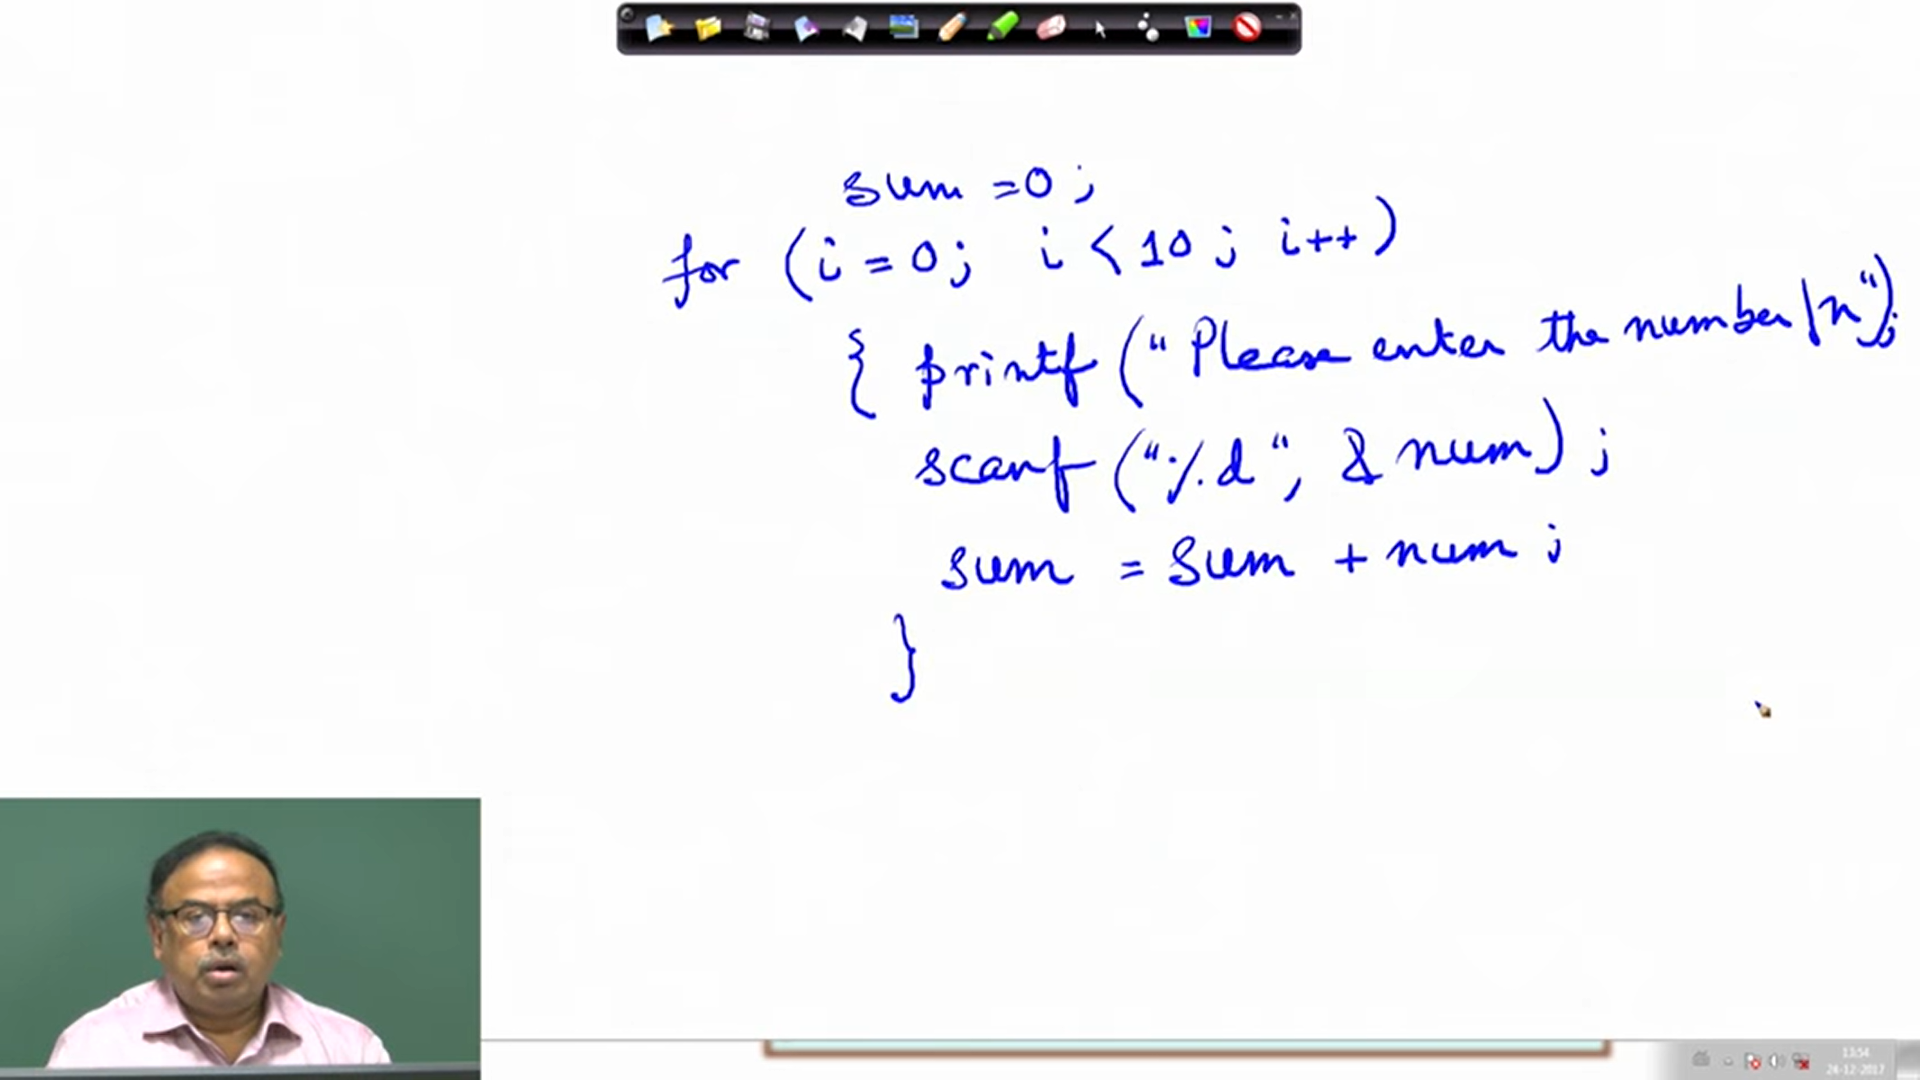 sum = 0 ;
for ( i = 0 ; i < 10 ; i++ )
{ printf ( " Please enter the number \n " ) ;
scanf ( " %d " , & num ) ;
sum = sum + num ;
}
13:54
24-12-2017